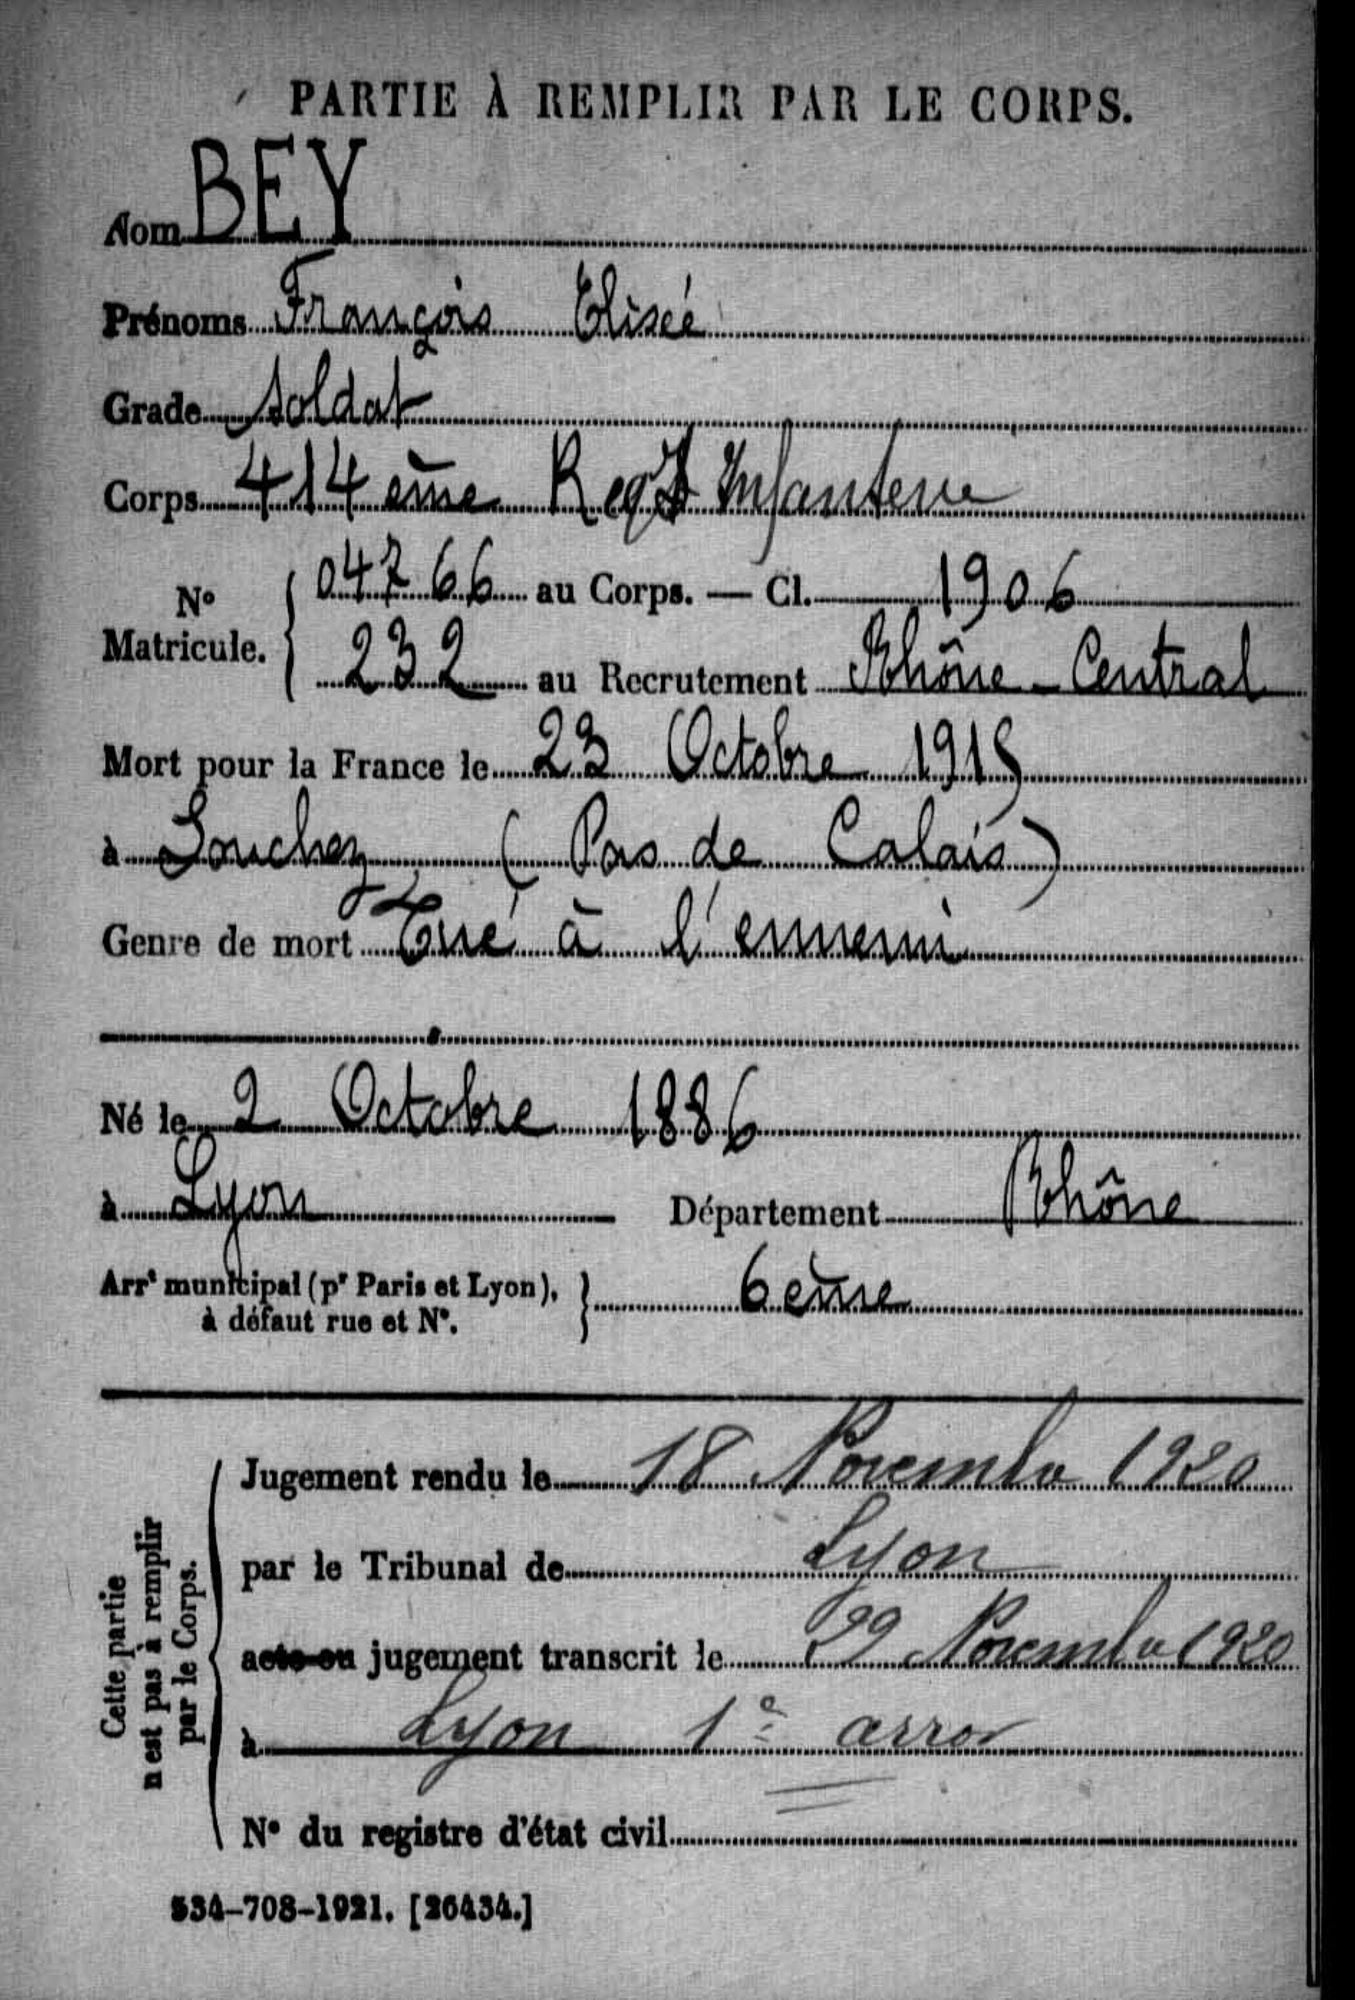 PARTIE À REMPLIR PAR LE CORPS.
Nom BEY
Prénoms François Elisée
Grade Soldat
Corps 414 ème Regt Infanterie
N° Matricule. { 04766 au Corps. — Cl. 1906
232 au Recrutement Rhône - Central
Mort pour la France le 23 Octobre 1915
à Souchez (Pas de Calais)
Genre de mort Tué à l'ennemi
Né le 2 Octobre 1886
à Lyon Département Rhône
Arrt municipal (pr Paris et Lyon), à défaut rue et N°. } 6 ème
Cette partie n'est pas à remplir par le Corps.
Jugement rendu le 18 Novembre 1920
par le Tribunal de Lyon
acte ou jugement transcrit le 29 Novembre 1920
à Lyon 1e arror
N° du registre d'état civil
534-708-1921. [26434.]